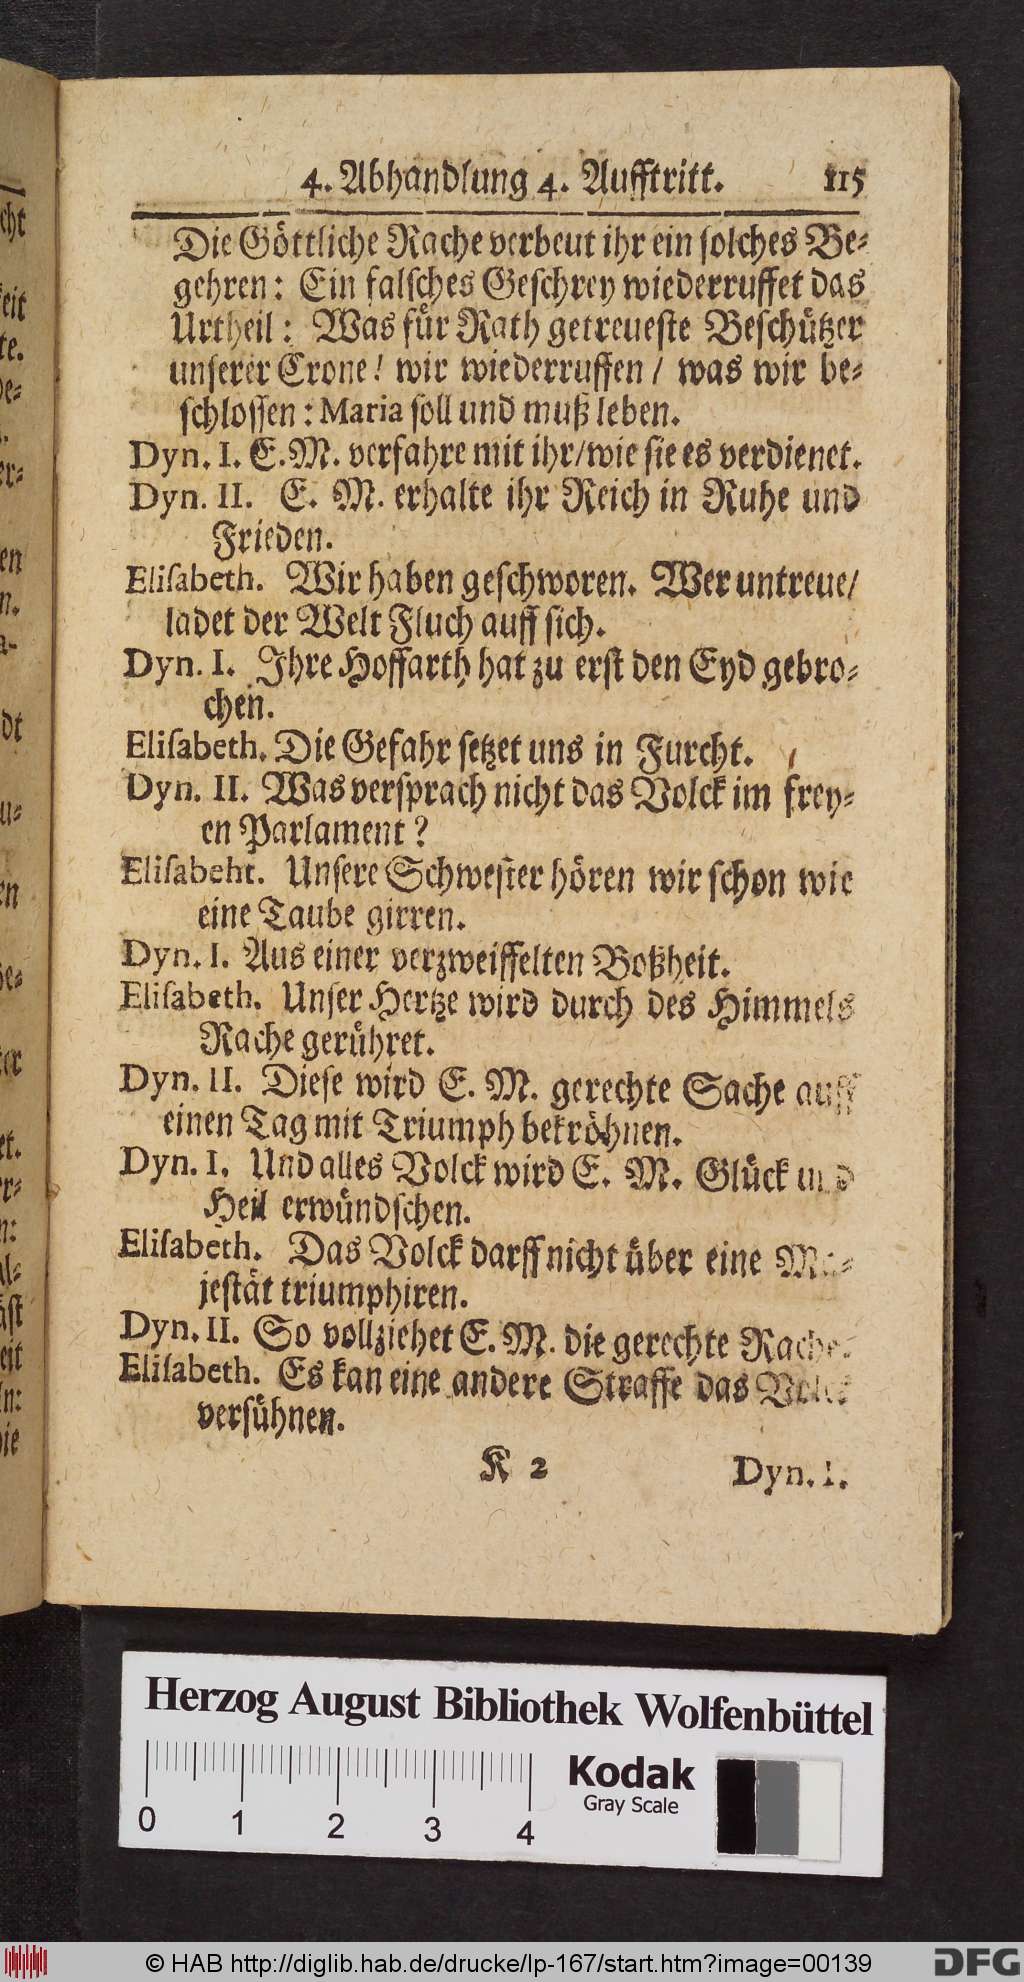 4. Abhandlung 4. Aufftritt. 115
Die Göttliche Rache verbeut ihr ein solches Be-
gehren: Ein falsches Geschrey wiederruffet das
Urtheil: Was für Rath getreueste Beschützer
unserer Crone! wir wiederruffen / was wir be-
schlossen: Maria soll und muß leben.
Dyn. I. E. M. verfahre mit ihr/wie sie es verdienet.
Dyn. II. E. M. erhalte ihr Reich in Ruhe und
Frieden.
Elisabeth. Wir haben geschworen. Wer untreue/
ladet der Welt Fluch auff sich.
Dyn. I. Ihre Hoffarth hat zu erst den Eyd gebro-
chen.
Elisabeth. Die Gefahr setzet uns in Furcht.
Dyn. II. Was versprach nicht das Volck im frey-
en Parlament?
Elisabeht. Unsere Schwester hören wir schon wie
eine Taube girren.
Dyn. I. Aus einer verzweiffelten Boßheit.
Elisabeth. Unser Hertze wird durch des Himmels
Rache gerühret.
Dyn. II. Diese wird E. M. gerechte Sache auff
einen Tag mit Triumph bekröhnen.
Dyn. I. Und alles Volck wird E. M. Glück und
Heil erwündschen.
Elisabeth. Das Volck darff nicht über eine Ma-
jestät triumphiren.
Dyn. II. So vollziehet E. M. die gerechte Rache.
Elisabeth. Es kan eine andere Straffe das Volck
versühnen.
K 2 Dyn. I.
Herzog August Bibliothek Wolfenbüttel
0 1 2 3 4
Kodak
Gray Scale
© HAB http://diglib.hab.de/drucke/lp-167/start.htm?image=00139
DFG